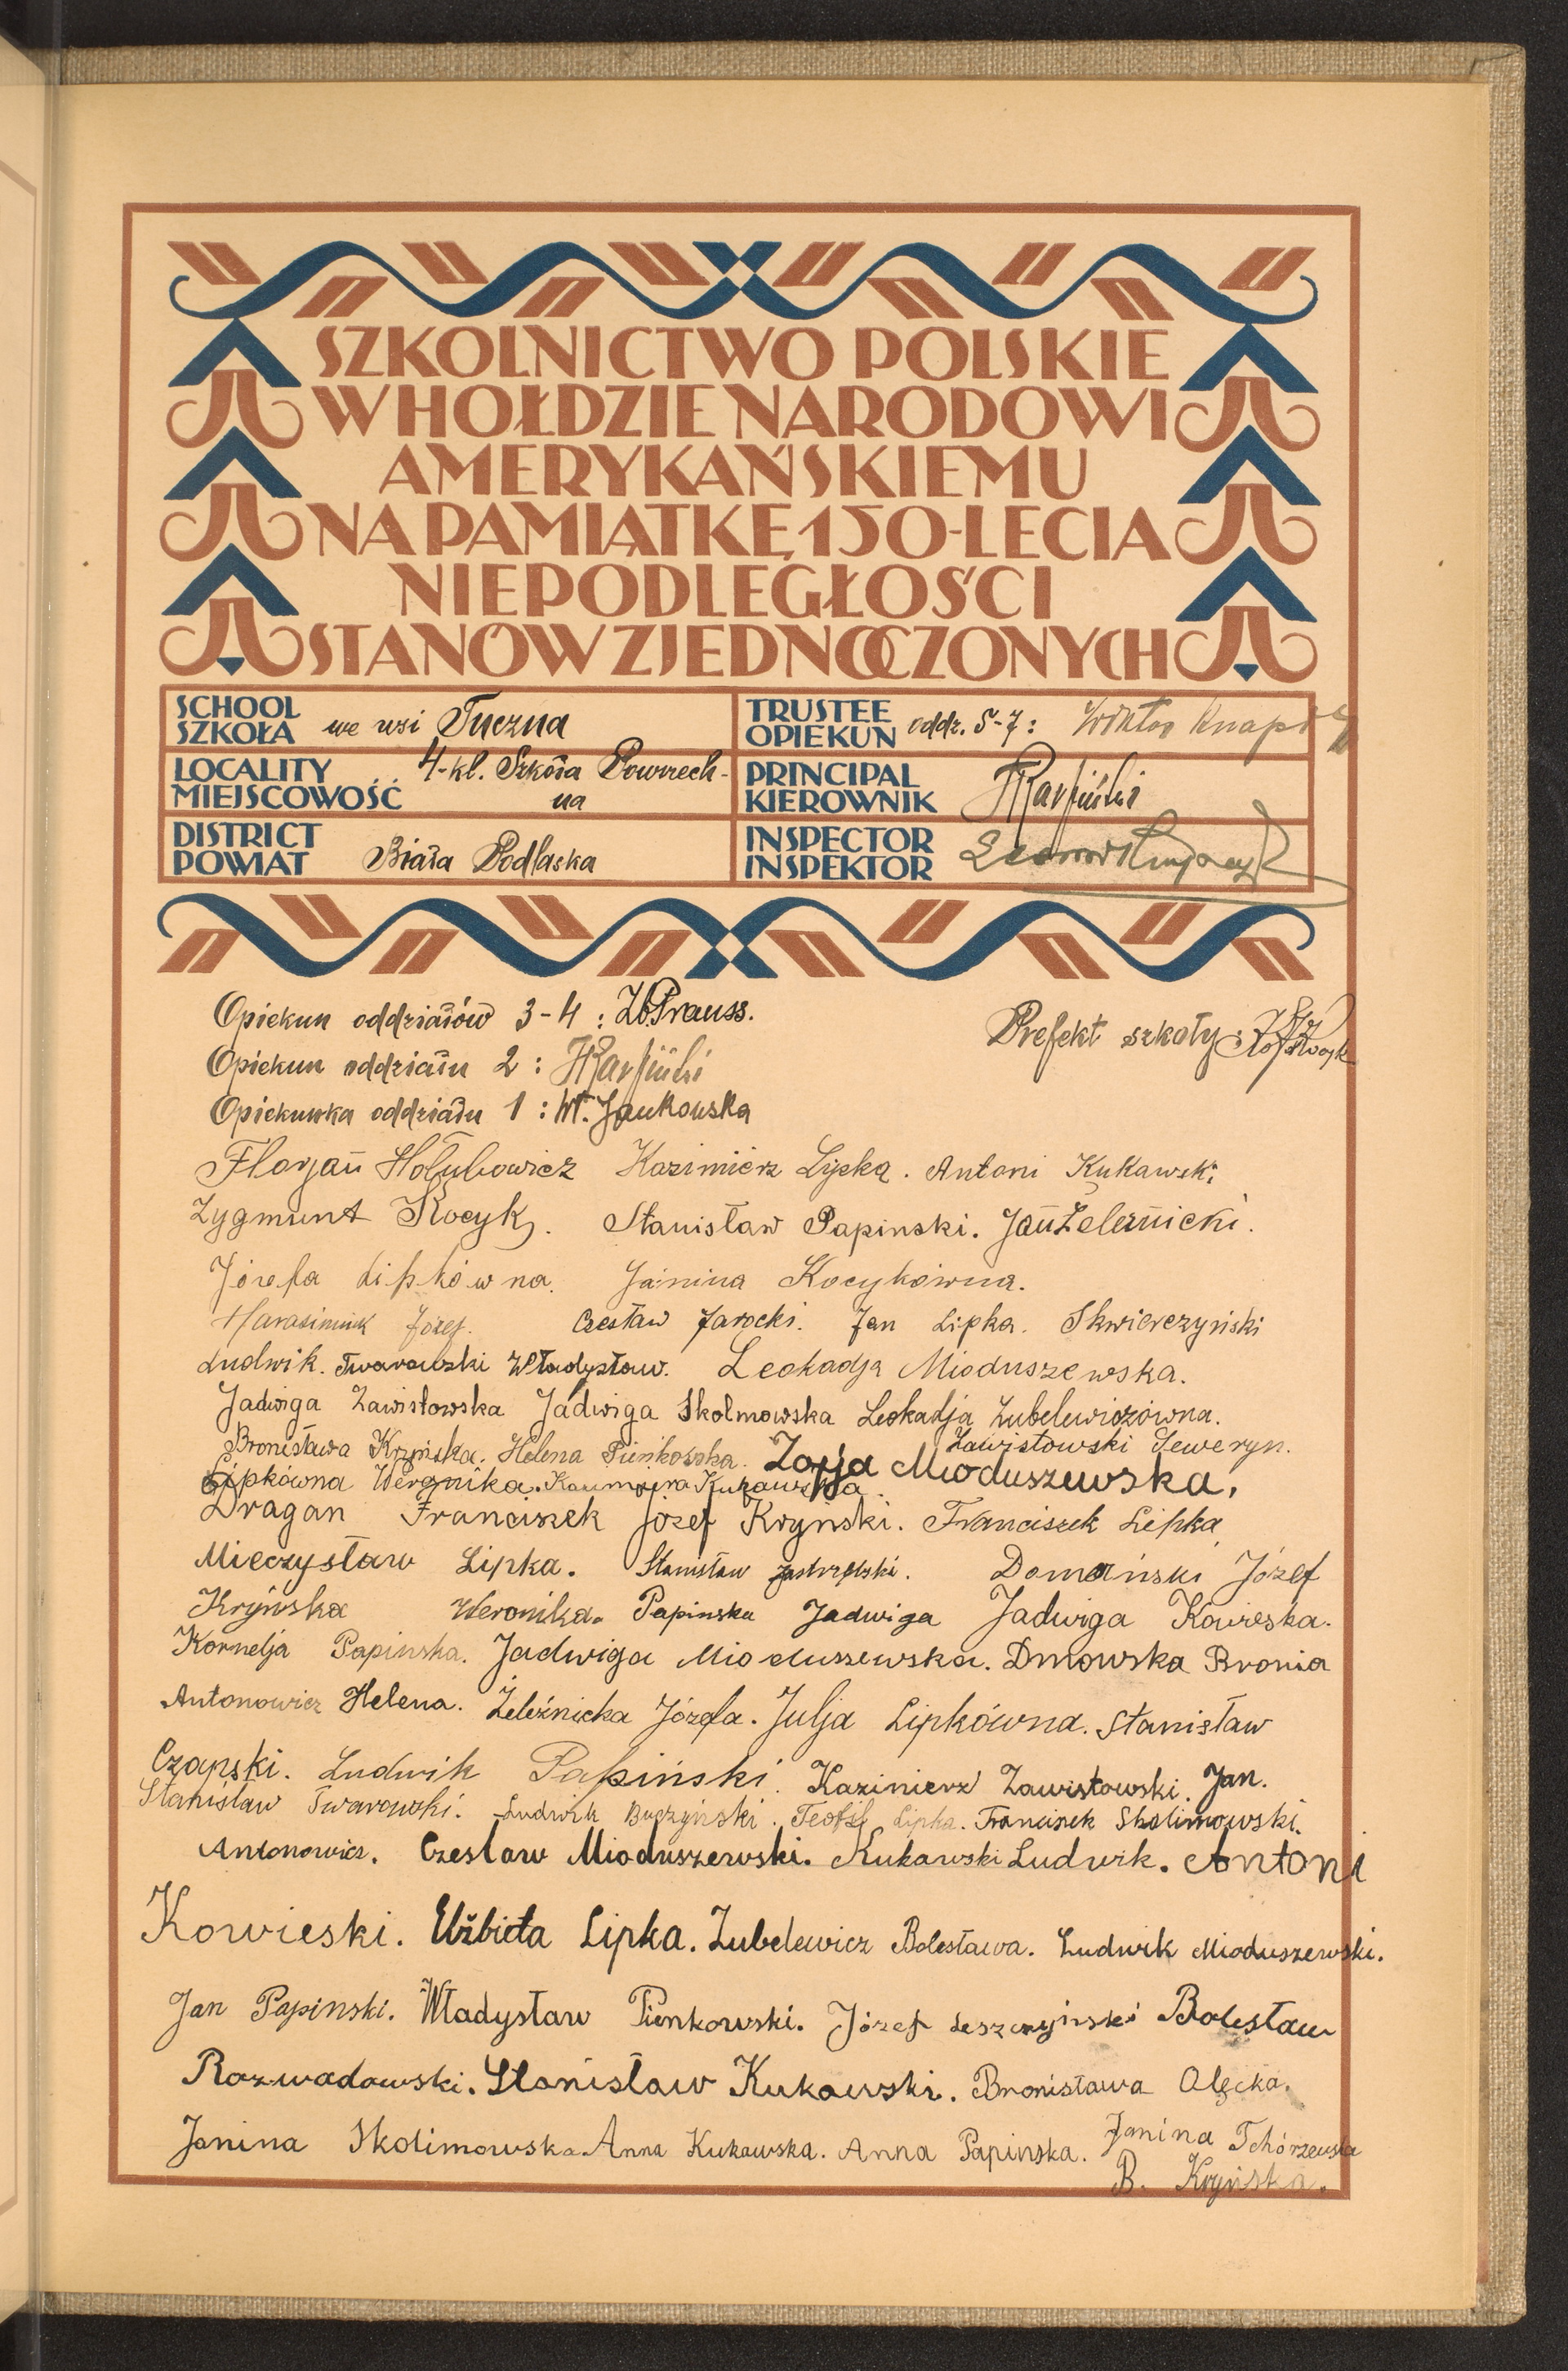 SZKOLNICTWO POLSKIE
W HOŁDZIE NARODOWI
AMERYKAŃSKIEMU
NA PAMIĄTKĘ 150-LECIA
NIEPODLEGŁOŚCI
STANÓW ZJEDNOCZONYCH
SCHOOL
SZKOŁA we wsi Tuczna
TRUSTEE
OPIEKUN oddz. 5-7: Wiktor
LOCALITY
MIEJSCOWOŚĆ 4-kl. Szkoła Powszech-
na
PRINCIPAL
KIEROWNIK
DISTRICT
POWIAT Biała Podlaska
INSPECTOR
INSPEKTOR
Opiekun oddziałów 3-4: Zb. Prauss.
Prefekt szkoły:
Opiekun oddziału 2:
Opiekunka oddziału 1: Wł. Jankowska
Florjan Hołubowicz Kazimierz Lipka. Antoni Kukawski
Zygmunt Kocyk. Stanisław Papinski. Jan Zelaznicki.
Józefa Lipkówna. Janina Kocykówna.
Harasimiuk Józef. Czesław Jarocki. Jan Lipka. Skwierczyński
Ludwik. Twarowski Władysław. Leokadja Mioduszewska.
Jadwiga Zawistowska Jadwiga Skolmowska Leokadja Zubelewiczówna.
Bronisława Kryńska. Helena Pieńkowska. Zawistowski Seweryn.
Zofja Mioduszewska.
Lipkówna Weronika. Kazimiera Kukawska.
Dragan Franciszek Józef Kryński. Franciszek Lipka
Mieczysław Lipka. Stanisław Jastrzębski. Domański Józef
Kryńska Weronika. Papinska Jadwiga Jadwiga Kowieska.
Kornelja Papinska. Jadwiga Mioduszewska. Dmowska Bronia
Antonowicz Helena. Żeleźnicka Józefa. Julja Lipkówna. Stanisław
Czapski. Ludwik Papiński. Kazimierz Zawistowski. Jan.
Stanisław Twarowski. Ludwik Buczyński. Teofil Lipka. Franciszek Skolimowski.
Antonowicz. Czesław Mioduszewski. Kukawski Ludwik. Antoni
Kowieski. Elżbieta Lipka. Zubelewicz Bolesława. Ludwik Mioduszewski.
Jan Papinski. Władysław Pienkowski. Józef Leszczyński Bolesław
Rozwadowski. Stanisław Kukawski. Bronisława Olęcka.
Janina Skolimowska Anna Kukawska. Anna Papinska. Janina Tchórzewska
B. Kryńska.